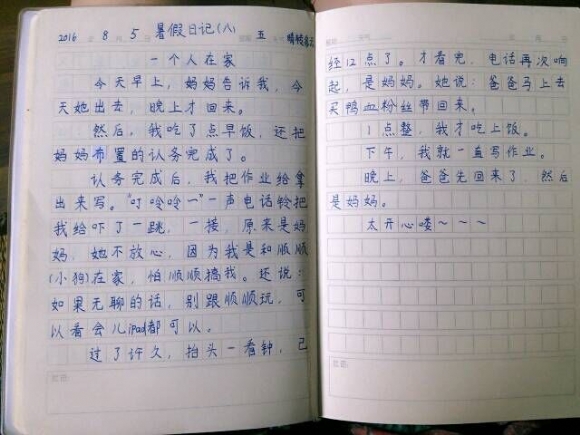 2016 8 5 暑假日记(八) 五
一个人在家
今天早上，妈妈告诉我，今
天她出去，晚上才回来。
然后，我吃了点早饭，还把
妈妈布置的认务完成了。
认务完成后，我把作业给拿
出来写。“叮呤呤一”一声电话铃把
我给吓了一跳，一接，原来是妈
妈，她不放心，因为我是和顺顺
(小狗)在家，怕顺顺搞我。还说：
如果无聊的话，别跟顺顺玩，可
以看会儿ipad都可以。
过了许久，抬头一看钟，已
经12点了。才看完，电话再次响
起，是妈妈。她说：爸爸马上去
买鸭血粉丝带回来。
1点整，我才吃上饭。
下午，我就一直写作业。
晚上，爸爸先回来了，然后
是妈妈。
太开心喽~~~